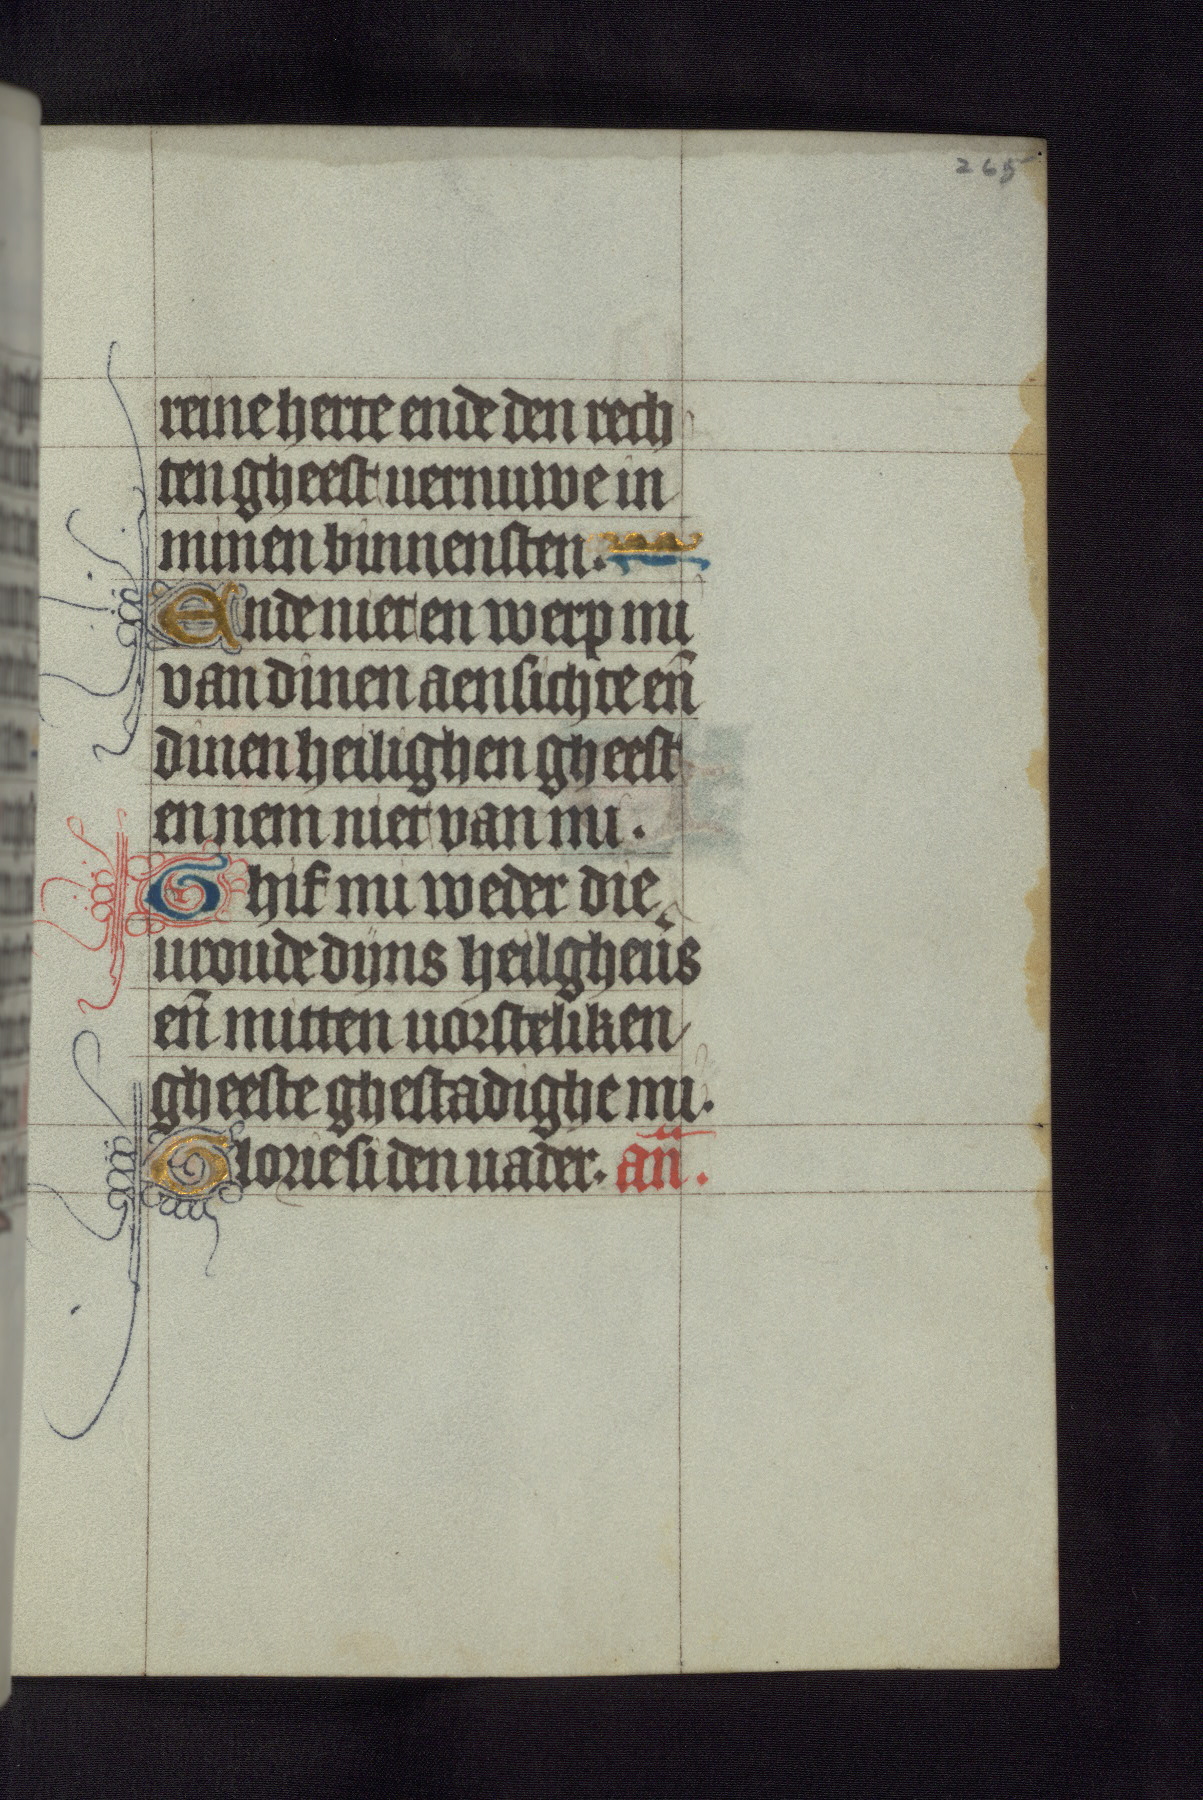 265
reine herte ende den rech
ten gheest vernuwe in
minen binnensten.
Ende niet en werp mi
van dinen aensichte en̄
dinen heilighen gheest
en nem niet van mi.
Ghif mi weder die
vroude dijns heilgheu̅s
en̄ mitten vorsteliken
gheeste ghestadighe mi.
Glorie si den vader. an̄.